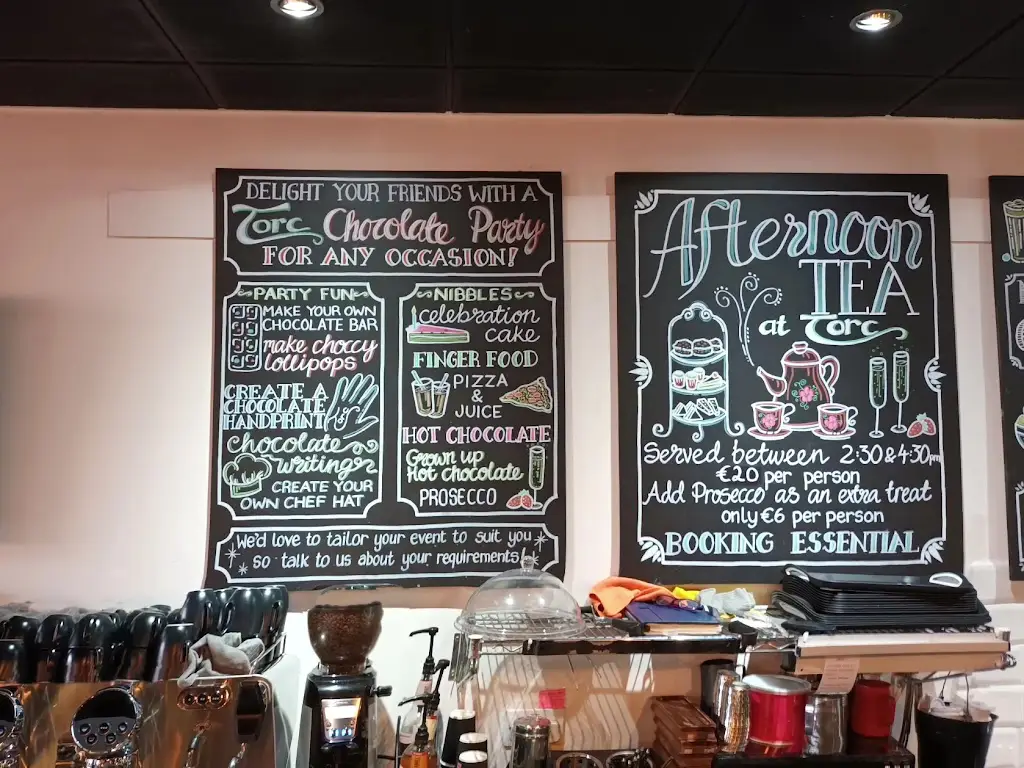 DELIGHT YOUR FRIENDS WITH A
Torc Chocolate Party
FOR ANY OCCASION!
PARTY FUN
MAKE YOUR OWN
CHOCOLATE BAR
make choccy
lollipops
CREATE A
CHOCOLATE
HANDPRINT
chocolate
writing
CREATE YOUR
OWN CHEF HAT
NIBBLES
celebration
cake
FINGER FOOD
PIZZA
&
JUICE
HOT CHOCOLATE
Grown up
Hot chocolate
PROSECCO
We'd love to tailor your event to suit you
so talk to us about your requirements!
Afternoon
TEA
at Torc
Served between 2:30 & 4:30pm
€20 per person
Add Prosecco as an extra treat
only €6 per person
BOOKING ESSENTIAL